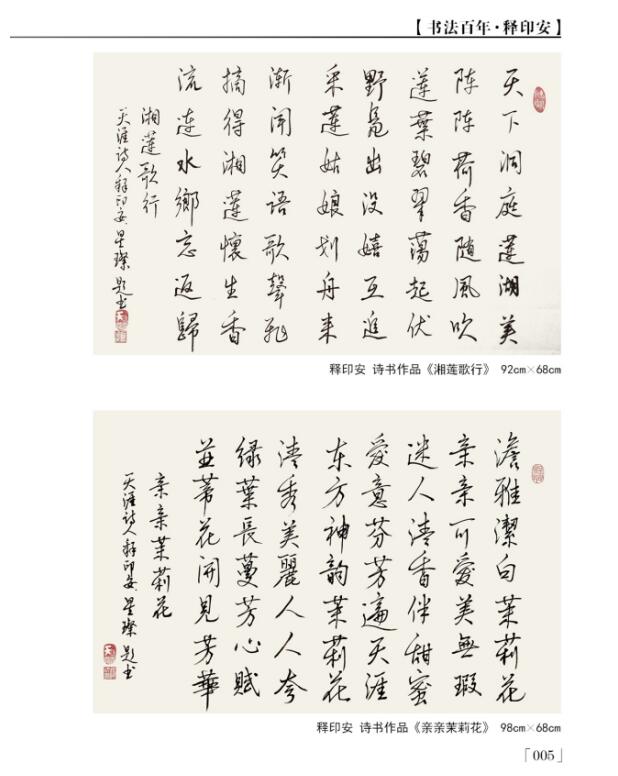 【书法百年·释印安】
天下洞庭莲湖美
阵阵荷香随风吹
莲葉碧翠蕩起伏
野凫出没嬉互追
采莲姑娘划舟来
渐闻笑语歌聲飛
摘得湘莲懷生香
流连水鄉忘返歸
湘莲歌行
天涯诗人释印安星燦题书
释印安 诗书作品《湘莲歌行》 92cm×68cm
澹雅潔白茉莉花
亲亲可愛美無瑕
迷人清香伴甜蜜
愛意芬芳遍天涯
东方神韵茉莉花
清秀美麗人人夸
绿葉長蔓芳心赋
並苇花开見芳華
亲亲茉莉花
天涯诗人释印安星燦题书
释印安 诗书作品《亲亲茉莉花》 98cm×68cm
「005」